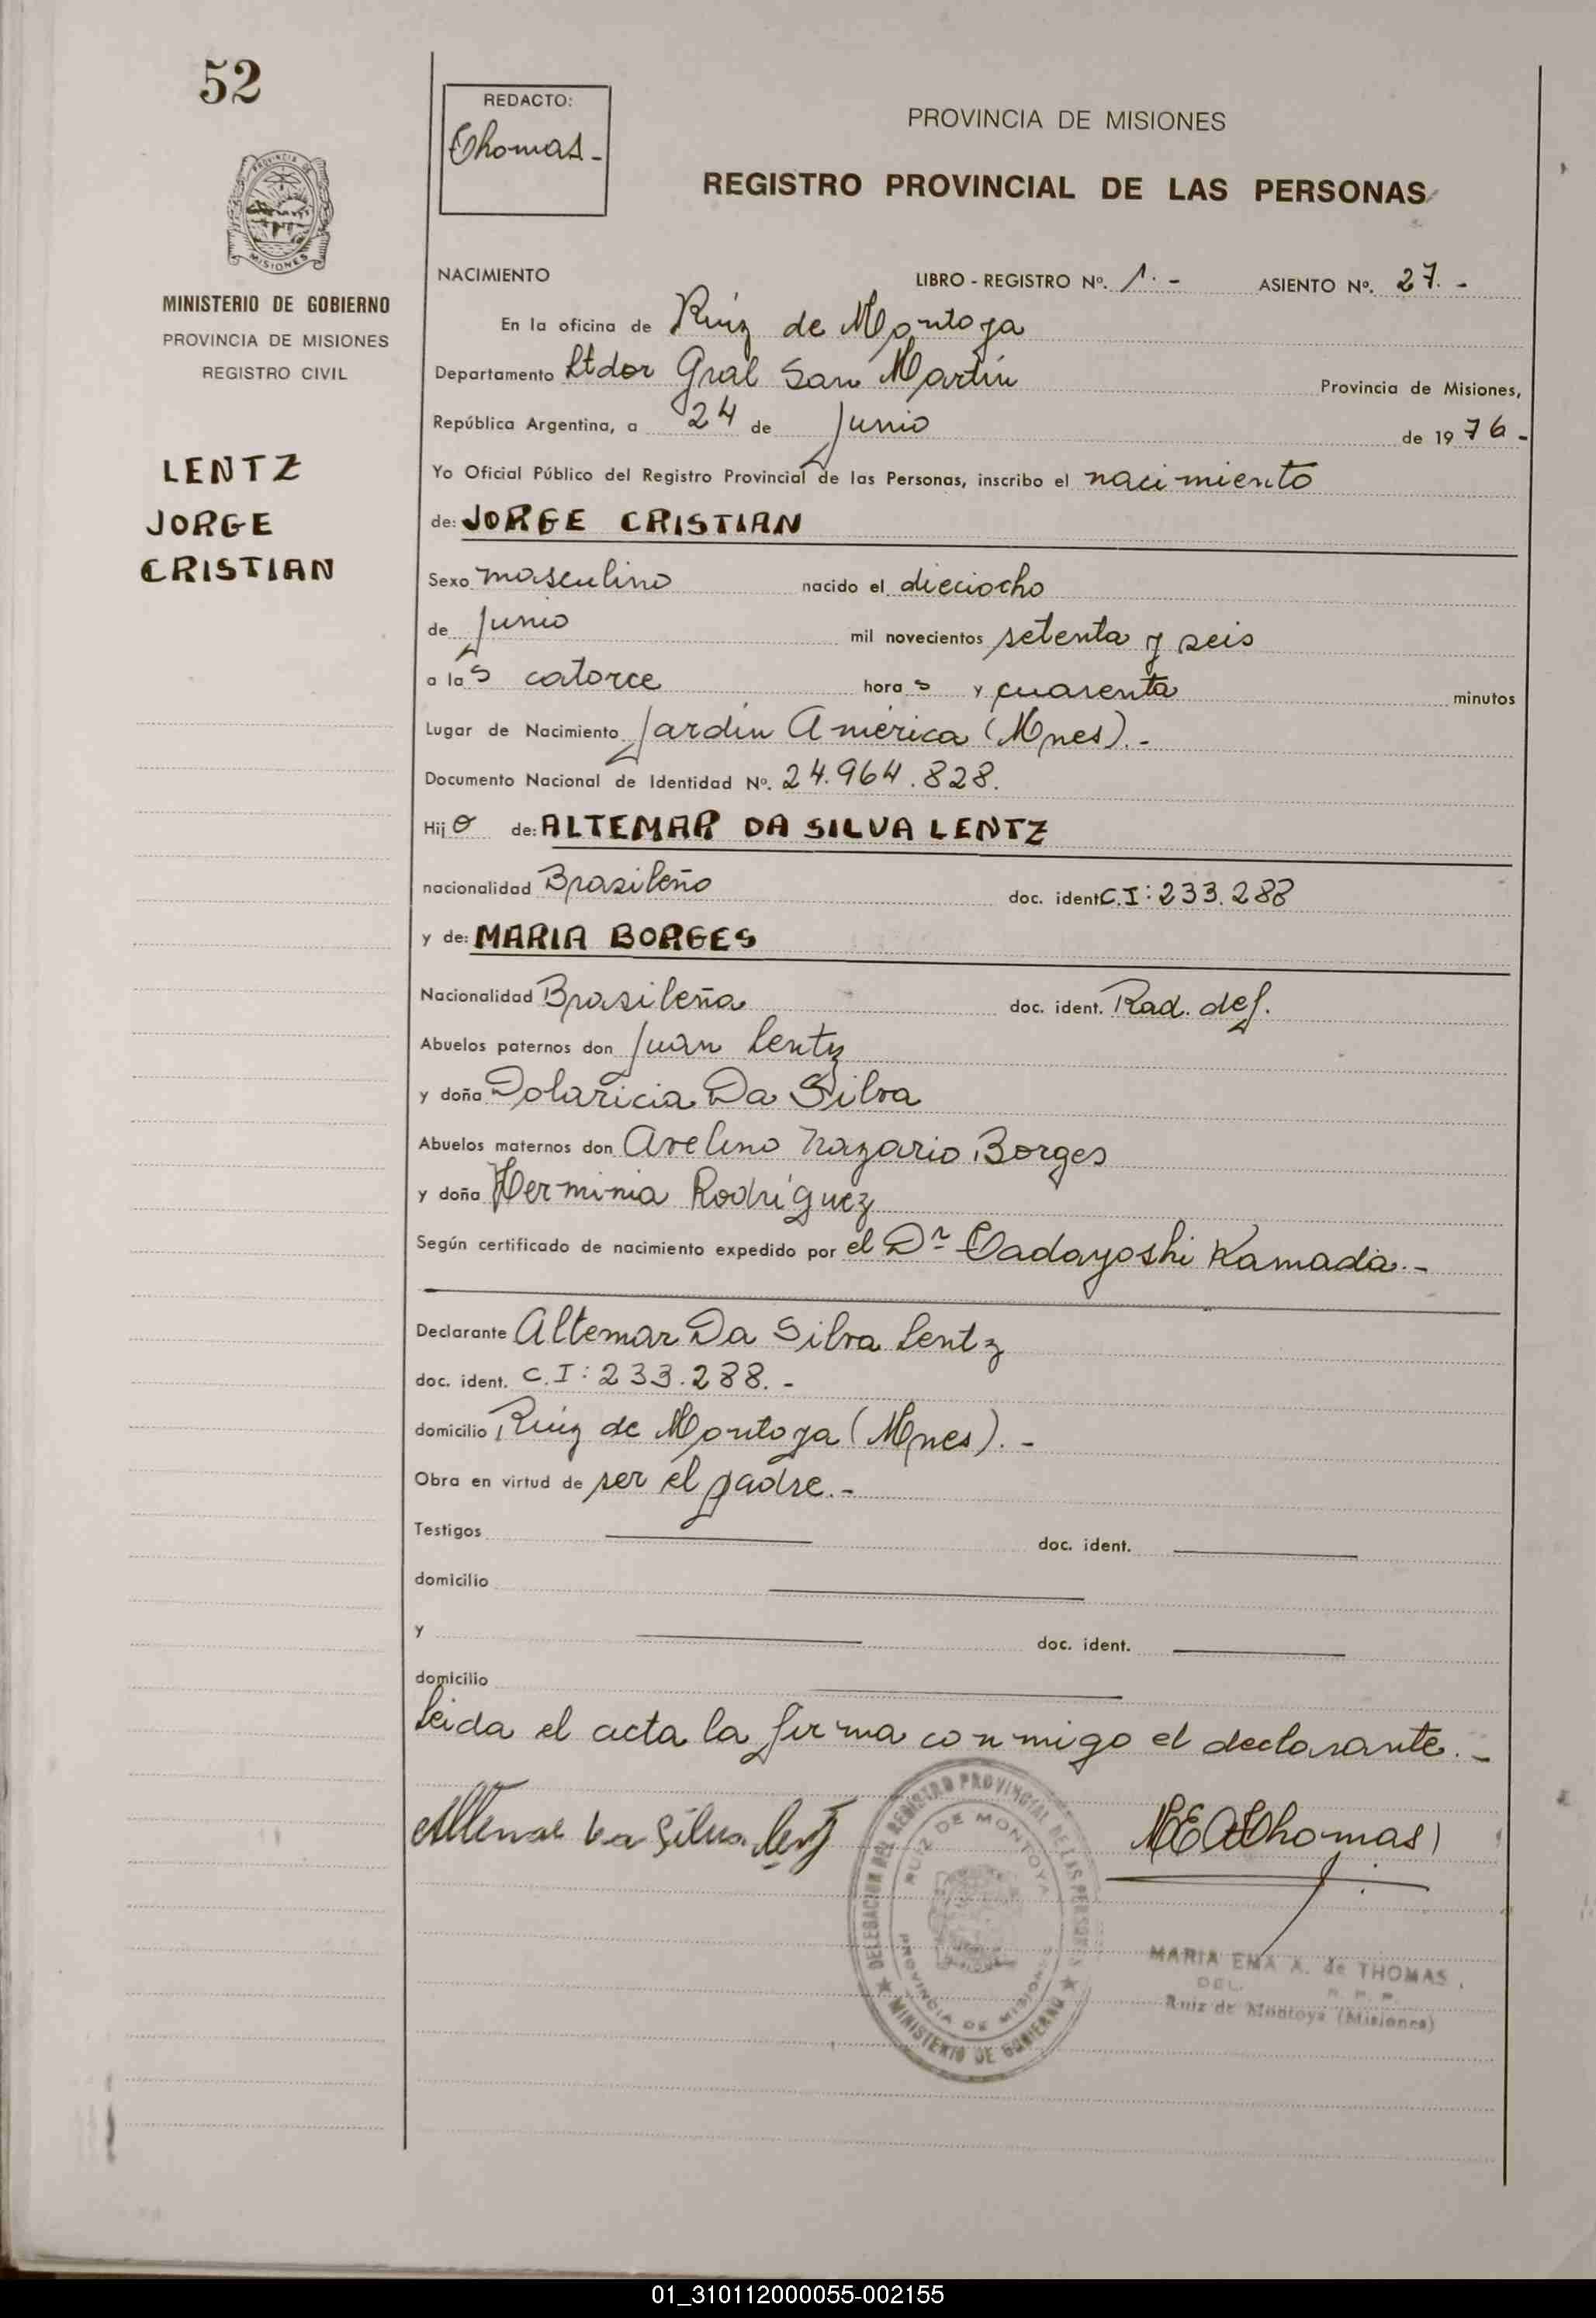 52
REDACTO:
Thomas -
PROVINCIA DE MISIONES
REGISTRO PROVINCIAL DE LAS PERSONAS
PROVINCIA DE
MISIONES
MINISTERIO DE GOBIERNO
PROVINCIA DE MISIONES
REGISTRO CIVIL
LENTZ
JORGE
CRISTIAN
NACIMIENTO LIBRO - REGISTRO Nº. 1. - ASIENTO Nº. 27. -
En la oficina de Ruiz de Montoya
Departamento Ltdor Gral San Martín Provincia de Misiones,
República Argentina, a 24 de Junio de 19 76 -
Yo Oficial Público del Registro Provincial de las Personas, inscribo el nacimiento
de: JORGE CRISTIAN
Sexo masculino nacido el dieciocho
de Junio mil novecientos setenta y seis
a las catorce horas y cuarenta minutos
Lugar de Nacimiento Jardín América (Mnes). -
Documento Nacional de Identidad Nº. 24.964.828.
Hijo de: ALTEMAR DA SILVA LENTZ
nacionalidad Brasileño doc. ident C.I: 233.288
y de: MARIA BORGES
Nacionalidad Brasileña doc. ident. Rad. def.
Abuelos paternos don Juan Lentz
y doña Dolaricia Da Silva
Abuelos maternos don Avelino Nazario Borges
y doña Herminia Rodríguez
Según certificado de nacimiento expedido por el Dr Tadayoshi Kamada. -
Declarante Altemar Da Silva Lentz
doc. ident. C.I: 233.288. -
domicilio Ruiz de Montoya (Mnes). -
Obra en virtud de ser el padre. -
Testigos doc. ident.
domicilio
y doc. ident.
domicilio
Leida el acta la firma conmigo el declarante. -
Altemar Da Silva Lentz
MEAThomas
DELEGACION DEL REGISTRO PROVINCIAL DE LAS PERSONAS
RUIZ DE MONTOYA
PROVINCIA DE MISIONES
MINISTERIO DE GOBIERNO
MARIA EMA A. de THOMAS
DEL. R. P. P.
Ruiz de Montoya (Misiones)
01_310112000055-002155